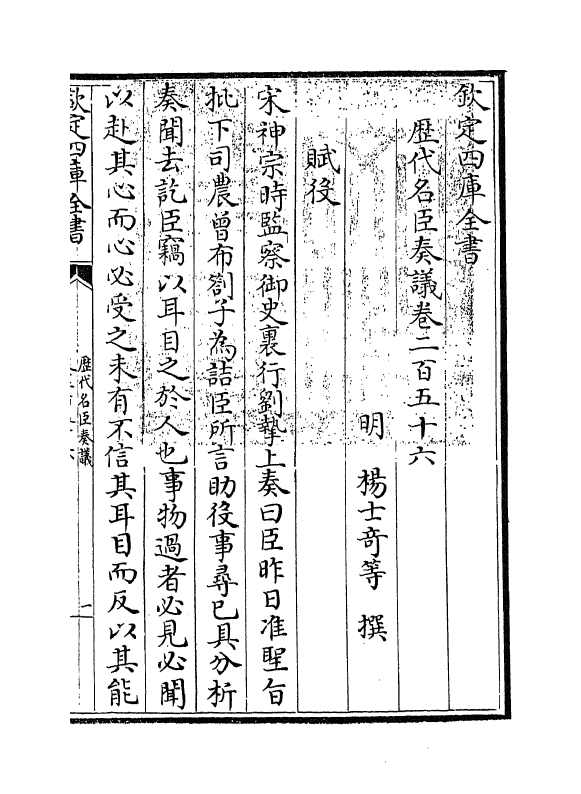 欽定四庫全書
歴代名臣奏議卷二百五十六
明　楊士奇等　撰
賦役
宋神宗時監察御史裏行劉摯上奏曰臣昨日准聖旨
批下司農曾布劄子為詰臣所言助役事尋已具分析
奏聞去訖臣竊以耳目之於人也事物過者必見必聞
以赴其心而心必受之未有不信其耳目而反以其能
欽定四庫全書
歴代名臣奏議
一